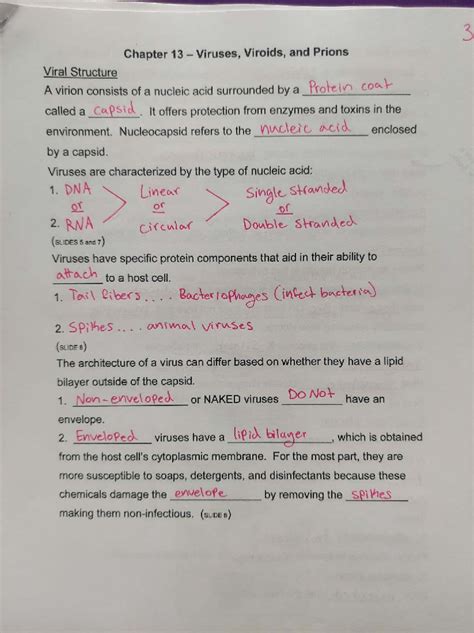 3
Chapter 13 – Viruses, Viroids, and Prions
Viral Structure
A virion consists of a nucleic acid surrounded by a Protein coat
called a capsid. It offers protection from enzymes and toxins in the
environment. Nucleocapsid refers to the nucleic acid enclosed
by a capsid.
Viruses are characterized by the type of nucleic acid:
1. DNA Linear Single Stranded
or or or
2. RNA circular Double Stranded
(SLIDES 5 and 7)
Viruses have specific protein components that aid in their ability to
attach to a host cell.
1. Tail fibers.... Bacteriophages (infect bacteria)
2. Spikes.... animal viruses
(SLIDE 6)
The architecture of a virus can differ based on whether they have a lipid
bilayer outside of the capsid.
1. Non-enveloped or NAKED viruses DO NOT have an
envelope.
2. Enveloped viruses have a lipid bilayer, which is obtained
from the host cell's cytoplasmic membrane. For the most part, they are
more susceptible to soaps, detergents, and disinfectants because these
chemicals damage the envelope by removing the spikes
making them non-infectious. (SLIDE 8)